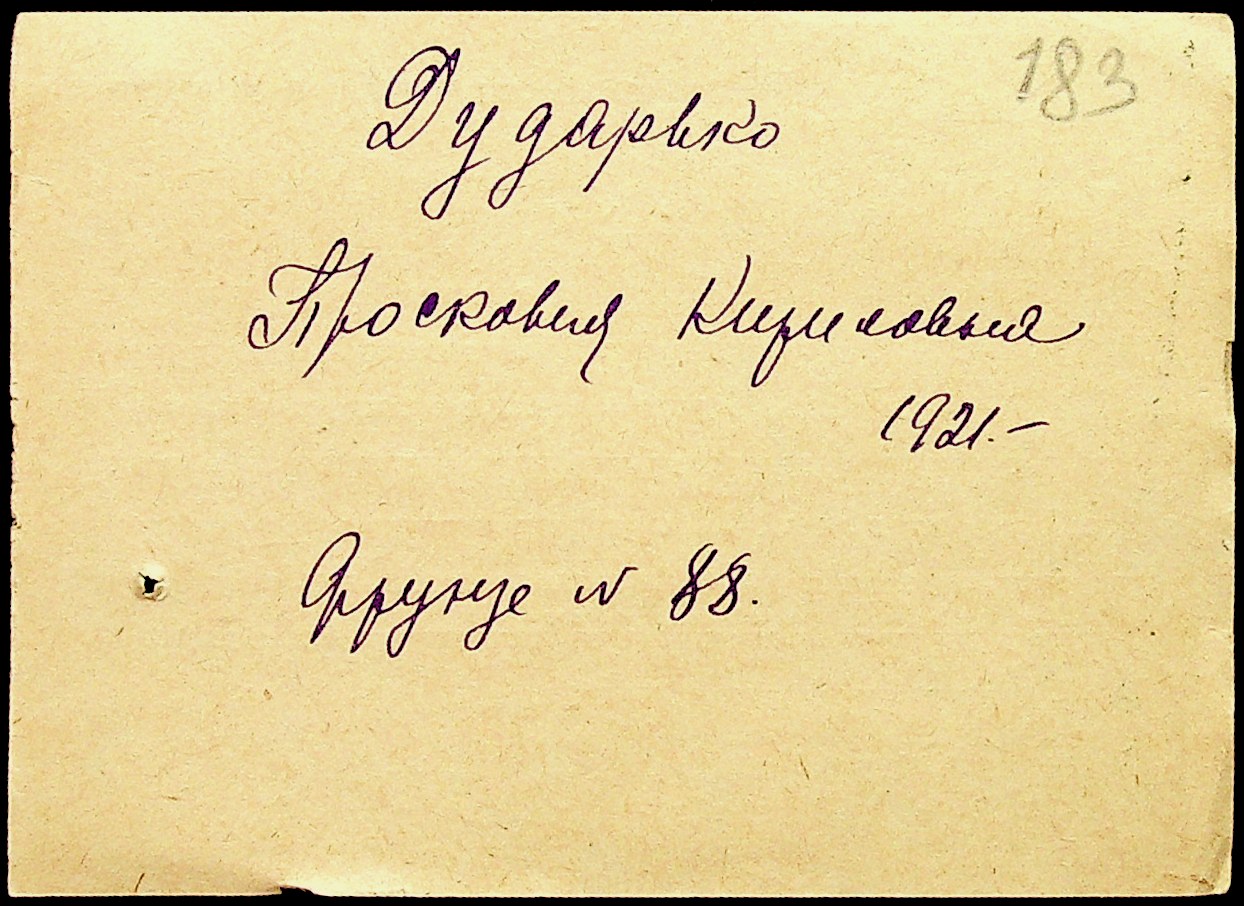 183
Дударько
Просковия Кириловна
1921.-
Фрунзе N 88.